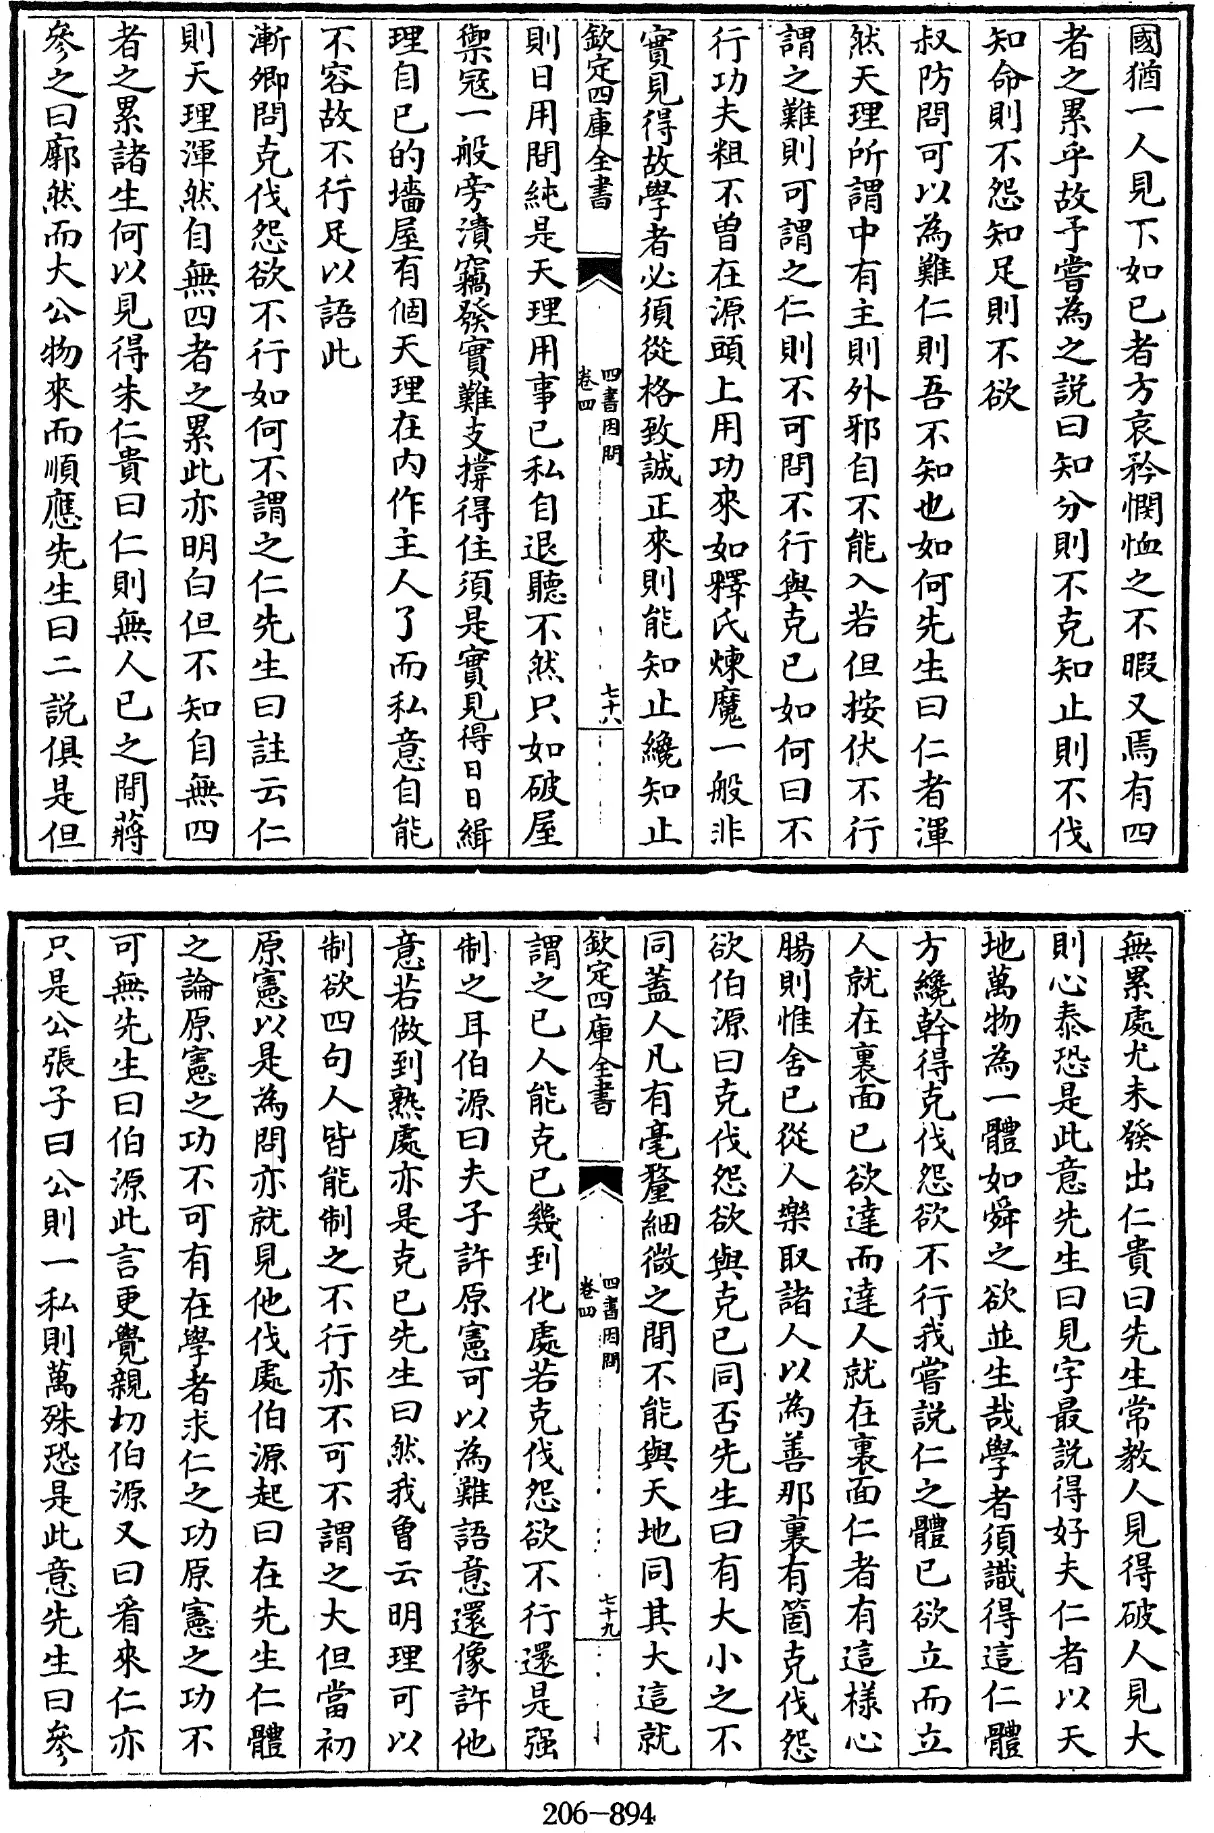 國猶一人見下如已者方哀矜憫恤之不暇又焉有四
者之累乎故予嘗為之說曰知分則不克知止則不伐
知命則不怨知足則不欲
叔防問可以為難仁則吾不知也如何先生曰仁者渾
然天理所謂中有主則外邪自不能入若但按伏不行
謂之難則可謂之仁則不可問不行與克已如何曰不
行功夫粗不曾在源頭上用功來如釋氏煉魔一般非
實見得故學者必須從格致誠正來則能知止纔知止
欽定四庫全書
四書因問
卷四
七十八
則日用間純是天理用事已私自退聽不然只如破屋
禦寇一般旁潰竊發實難支撐得住須是實見得日日緝
理自已的墻屋有個天理在内作主人了而私意自能
不容故不行足以語此
漸卿問克伐怨欲不行如何不謂之仁先生曰註云仁
則天理渾然自無四者之累此亦明白但不知自無四
者之累諸生何以見得朱仁貴曰仁則無人已之間蔣
參之曰廓然而大公物來而順應先生曰二說俱是但
無累處尤未發出仁貴曰先生常教人見得破人見大
則心泰恐是此意先生曰見字最說得好夫仁者以天
地萬物為一體如舜之欲並生哉學者須識得這仁體
方纔幹得克伐怨欲不行我嘗說仁之體已欲立而立
人就在裏面已欲達而達人就在裏面仁者有這樣心
腸則惟舍已從人樂取諸人以為善那裏有箇克伐怨
欲伯源曰克伐怨欲與克已同否先生曰有大小之不
同蓋人凡有毫釐細微之間不能與天地同其大這就
欽定四庫全書
四書因問
卷四
七十九
謂之已人能克已幾到化處若克伐怨欲不行還是强
制之耳伯源曰夫子許原憲可以為難語意還像許他
意若做到熟處亦是克已先生曰然我曾云明理可以
制欲四句人皆能制之不行亦不可不謂之大但當初
原憲以是為問亦就見他伐處伯源起曰在先生仁體
之論原憲之功不可有在學者求仁之功原憲之功不
可無先生曰伯源此言更覺親切伯源又曰看來仁亦
只是公張子曰公則一私則萬殊恐是此意先生曰參
206-894